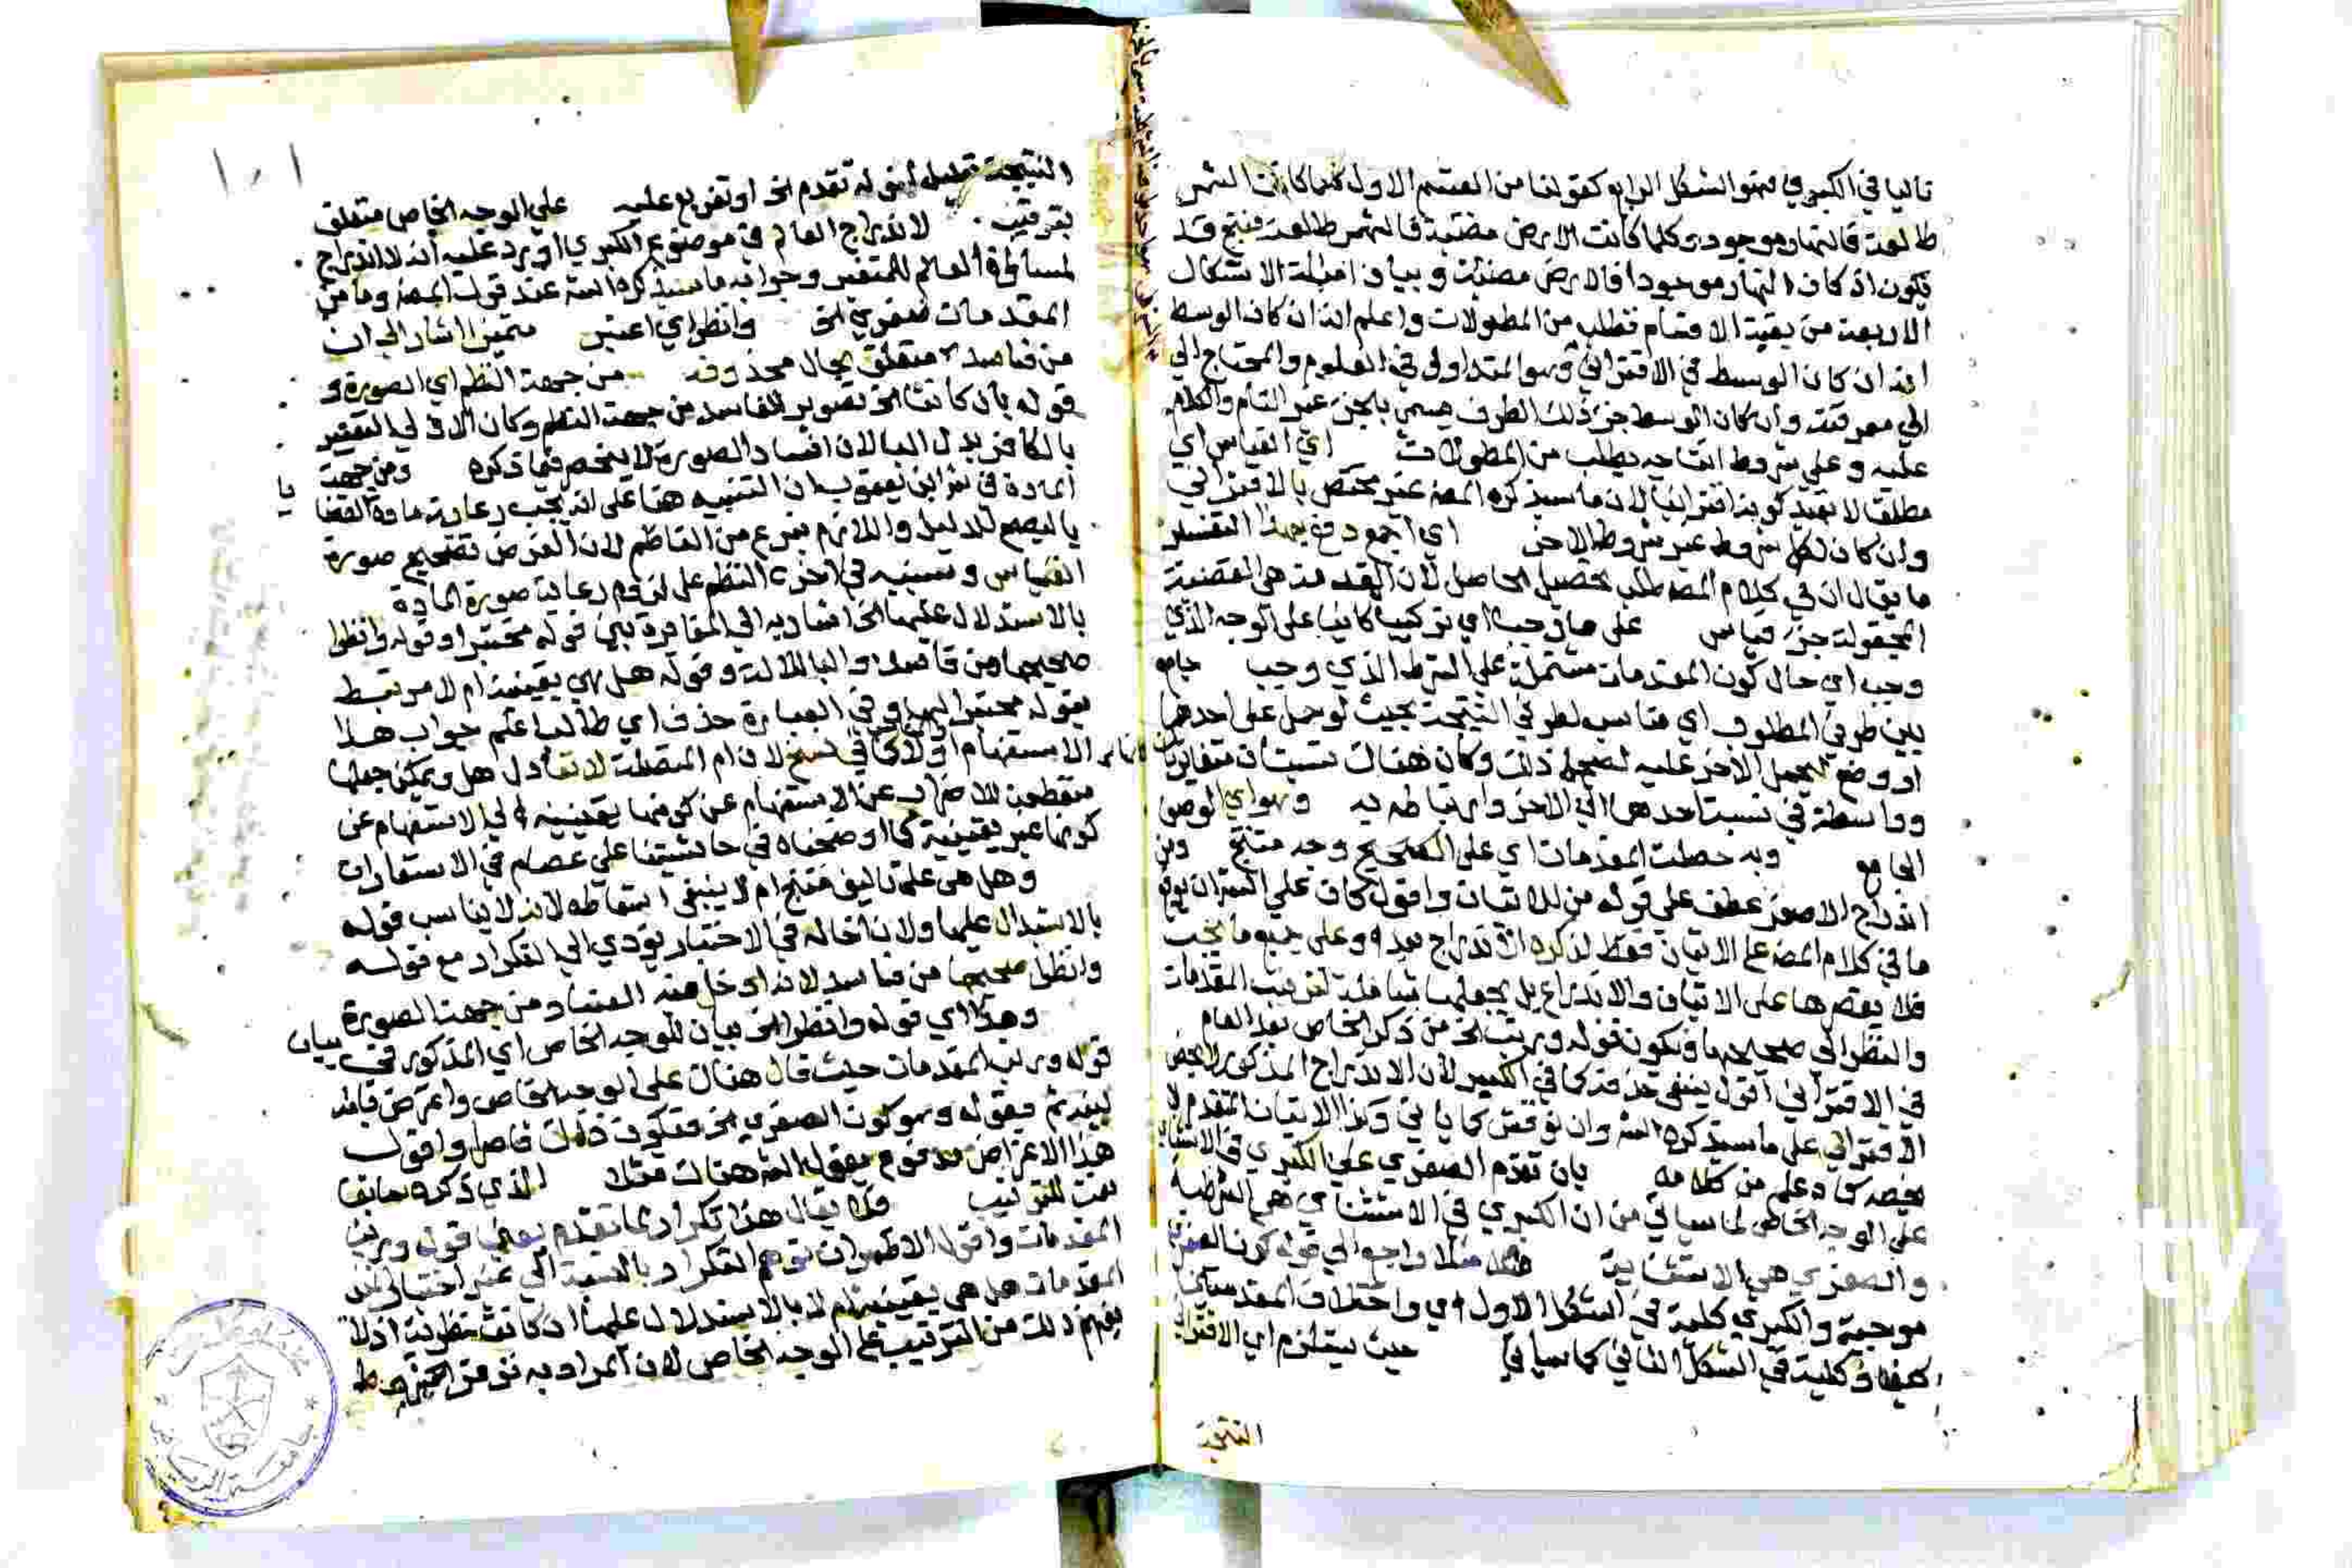 تاليا في الكبري فهو الشكل الرابع كقولنا من القسم الاول كلما كانت الشمس
طالعة فالنهار موجود وكلما كانت الارض مضيئة فالشمس طالعة فينتج قد
يكون اذ كان النهار موجودا فالارض مضيئة وبيان امثلة الاشكال
الاربعة من بقية الاقسام تطلب من المطولات واعلم انه ان كان الوسط
انه ان كان الوسط في الاقتراني وهو المتداولي في العلوم والمحتاج الي
الي معرفته وان كان الوسط جزء ذلك الطرف يسمي بالجزء غير التام والكلام
عليه وعلي شروط انتاجه يطلب من المطولات اي القياس اي
مطلقا لا بقيد كونه اقترانيا لان ما سيذكره المصنف غير مختص بالاقتراني
وان كان لكل شروط غير شروط الاخر اي اجمع دفع بهذا التفسير
ما يقال ان في كلام المصنف طلب تحصيل الحاصل لان المقدمة هي القضية
المجعولة جزء قياس علي ما وجب اي تركيبا كاينا علي الوجه الذي
وجب اي حال كون المقدمات مشتملة علي الشرط الذي وجب جامع
بين طرفي المطلوب اي مناسب لطرفي النتيجة بحيث لو حمل علي احدهما
او وضع ليحمل الاخر عليه لصح ذلك وكان هناك نسبتان متغايرتان
وواسطة في نسبة احدهما الي الاخر وارتباطه به وهو اي الوصف
الجامع وبه حصلت المقدمات اي علي الصحيح وجه منتج ومن
اندراج الاصغر عطف علي قوله من للاتيان واقول كان علي الشران يوقع
ما في كلام المصنف علي الاتيان فقط لذكره الاندراج بعد وعلي جميع ما يجب
فلا يقصرها علي الاتيان والاندراج بل يجعلها شاملة لترتيب المقدمات
والنظر الي صحيحها ويكون قوله ورتب الخ من ذكر الخاص بعد العام
في الاقتراني اقول ينبغي حذفه كما في الكبير لان الاندراج المذكور لا يخص
الاقتراني علي ما سيذكره الش وان نوقش كما ياتي وكذا الاتيان المتقدم لا
يخصه كما علم من كلامه بان تقدم الصغري علي الكبري في الاستثنا
علي الوجه الخاص لما سياتي من ان الكبري في الاستثنائي هي الشرطية
والصغري هي الاستثنائية مثلا راجع الي قوله كون الصغري
موجبة والكبري كلية في الشكل الاول اي واختلاف المقدمتين
كيفا وكلية في الشكل الثاني كما سياتي حيث يستلزم اي الاقتراني
النتيجة
١٠١
النتيجة تعليل لقوله تقدم الخ او تفريع عليه علي الوجه الخاص متعلق
بترتيب لاندراج العالم في موضوع الكبري اورد عليه انه لا اندراج
لمساواة العالم للمتغير وجوابه ما سيذكره الش عند قول المصنف وما من
المقدمات صغري الخ وانظر اي اعتبر متميزا اشار الي ان
من فاسد متعلق بحال محذوفة من جهة النظم اي الصورة و
قوله بان كانت الخ تصوير للفاسد من جهة النظم وكان الاولي التعبير
بالكاف بدل البا لان افساد الصورة لا ينحصر فيما ذكره ومن جهة
المادة في شرابن يعقوب ان التنبيه هنا علي انه يجب رعاية مادة القضا يا
ليصح الدليل واللازم تبرع من الناظم لان الغرض تصحيح صورة
القياس وسينبه في اخر النظم علي لزوم رعاية صورة المادة
بالاستدلال عليها الخ اشار به الي المغايرة بين قوله مختبرا وقوله وانظر
صحيحها من فاسد والبا للالة وقوله هل هي يقينية ام لا مرتبط
بقوله مختبرا لها وفي العبارة حذف اي طالبا علم جواب هذا
الاستفهام اولا كما في نسخ لان ام المتصلة لا تعادل هل ويمكن جعلها
منقطعة للاضراب عن الاستفهام عن كونها يقينية الي الاستفهام عن
كونها غير يقينية كما اوضحناه في حاشيتنا علي عصام في الاستعارات
وهل هي علي تاليف منتج ام لا ينبغي اسقاطه لانه لا يناسب قوله
بالاستدلال عليها ولان ادخاله في الاختبار يؤدي الي التكرار مع قوله
وانظر صحيحها من فاسد لانه ادخل فيه الفساد من جهة الصورة
وهذا اي قوله وانظر الخ بيان للوجه الخاص اي المذكور في بيان
قوله ورتب المقدمات حيث قال هناك علي الوجه الخاص واعترض بانه
لبينه ثم بقوله وهو كون الصغري الخ فتكون ذلك فاصل واقول
هذا الاعتراض مدفوع بقول الش هناك مثلا الذي ذكره سابقا
نعت للترتيب فلا يقال هذا تكرار لما تقدم يعني قوله ورتب
المقدمات واقول الاظهر ان توهم التكرار بالنسبة الي غير اختبار
المقدمات هل هي يقينية ام لا بالاستدلال عليها ان كانت نظرية اذ لا
يفهم ذلك من الترتيب علي الوجه الخاص لان المراد به توفر الشروط